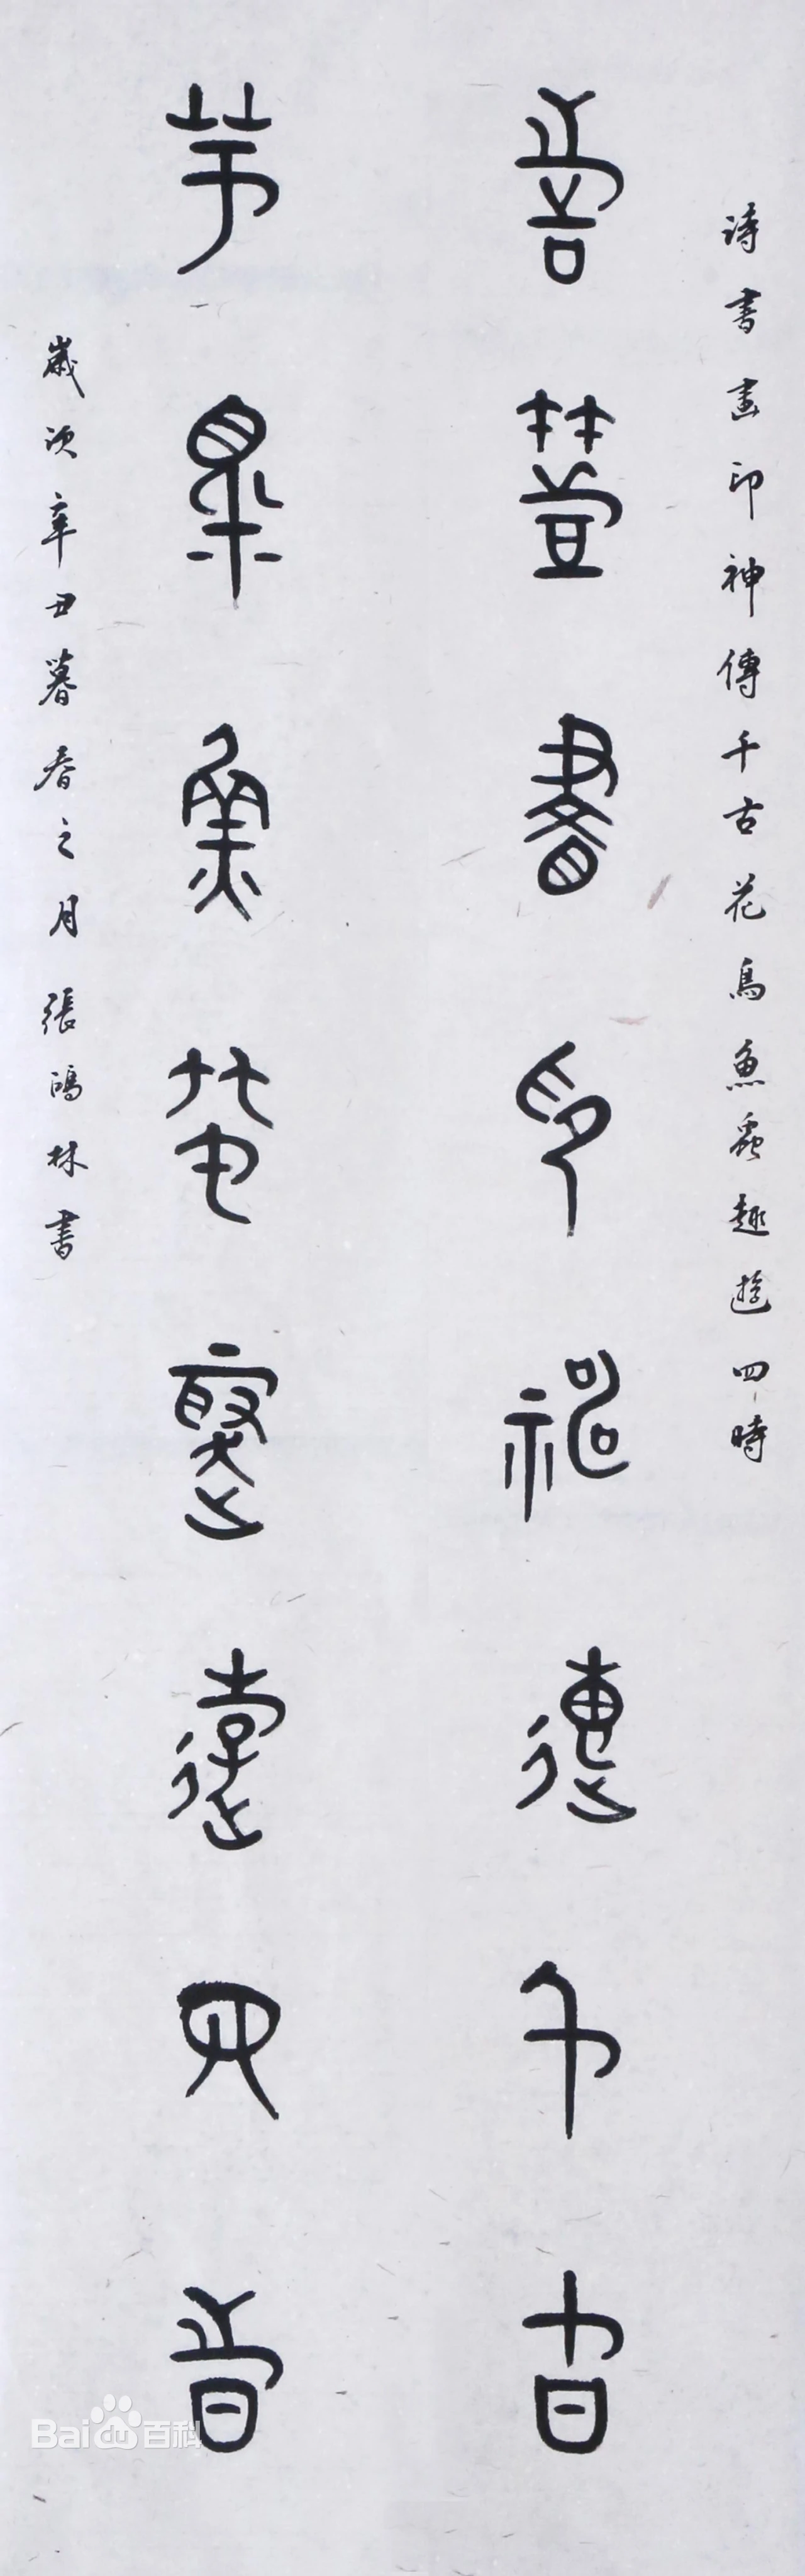 詩書畫印神傳千古花鳥魚蟲趣遊四時
詩書畫印神傳千古
花鳥魚蟲趣遊四時
歲次辛丑暮春之月張鴻林書
Baidu百科